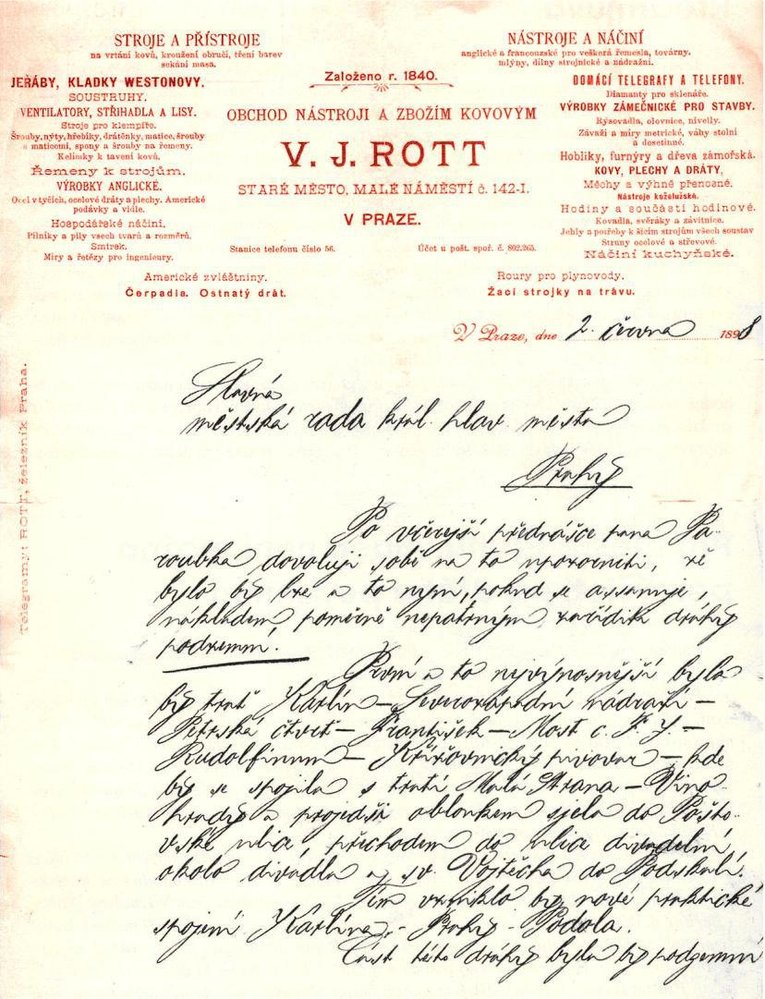 STROJE A PŘÍSTROJE
na vrtání kovů, kroužení obručí, tření barev
sekání masa.
JEŘÁBY, KLADKY WESTONOVY.
SOUSTRUHY.
VENTILATORY, STŘIHADLA A LISY.
Stroje pro klempíře.
Šrouby, nýty, hřebíky, drátěnky, matice, šrouby
s maticemi, spony a šrouby na řemeny.
Kelímky k tavení kovů.
Řemeny k strojům.
VÝROBKY ANGLICKÉ.
Ocel v tyčích, ocelové dráty a plechy. Americké
podávky a vidle.
Hospodářské náčiní.
Pilníky a pily všech tvarů a rozměrů.
Smirek.
Míry a řetězy pro ingenieury.
Americké zvláštniny.
Čerpadla. Ostnatý drát.
Založeno r. 1840.
OBCHOD NÁSTROJI A ZBOŽÍM KOVOVÝM
V. J. ROTT
STARÉ MĚSTO, MALÉ NÁMĚSTÍ č. 142-I.
V PRAZE.
Stanice telefonu číslo 56.
Účet u pošt. spoř. č. 802.265.
NÁSTROJE A NÁČINÍ
anglické a francouzské pro veškerá řemesla, továrny,
mlýny, dílny strojnické a nádražní.
DOMÁCÍ TELEGRAFY A TELEFONY.
Diamanty pro sklenáře.
VÝROBKY ZÁMEČNICKÉ PRO STAVBY.
Rýsovadla, olovnice, nivelly.
Závaží a míry metrické, váhy stolní
a desetinné.
Hobliky, furnýry a dřeva zámořská.
KOVY, PLECHY A DRÁTY,
Měchy a výhně přenosné.
Nástroje koželužské.
Hodiny a součásti hodinové.
Kovadla, svěráky a závitnice.
Jehly a potřeby k šicím strojům všech soustav
Struny ocelové a střevové.
Náčiní kuchyňské.
Roury pro plynovody.
Žací strojky na trávu.
V Praze, dne 2. června 1898
Telegramy: ROTT, železník Praha.
Slavná
městská rada král. hlav. města
Prahy
Po včerejší přednášce pana Pa-
roubka dovoluji sobě na to upozorniti, že
bylo by lze a to nyní, pokud se assanuje,
nákladem poměrně nepatrným zaříditi dráhy
podzemní.
První a to nejvýnosnější byla
by trať Karlín – Severozápadní nádraží –
Petrská čtvrť – František – Most c. F. J. –
Rudolfinum – Křižovnický pivovar – kde
by se spojila s tratí Malá Strana – Vino-
hrady a projedši obloukem sjela do Pošto-
vské ulice, přechodem do ulice divadelní,
okolo divadla a sv. Vojtěcha do Podskalí.
Tím vzniklo by nové praktické
spojení Karlína – Prahy – Podola.
Část této dráhy byla by podzemní